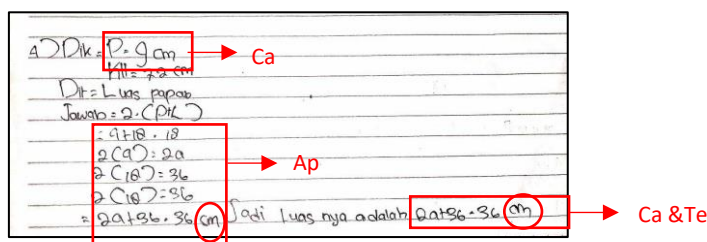 4) Dik = P = 9 cm → Ca
Kll = 72 cm
Dit = Luas papan
Jawab = 2 . (P+L)
= 9+18 . 18
2(a) = 2a → Ap
2(18) = 36
2(18) = 36
= 2a+36 . 36 cm Jadi luas nya adalah 2a+36 . 36 cm → Ca &Te